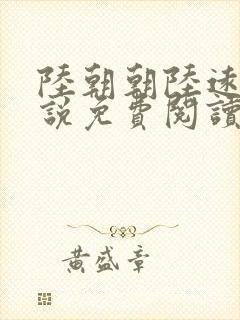 陸朝朝陸遠
說免費閱讀
黃盛章